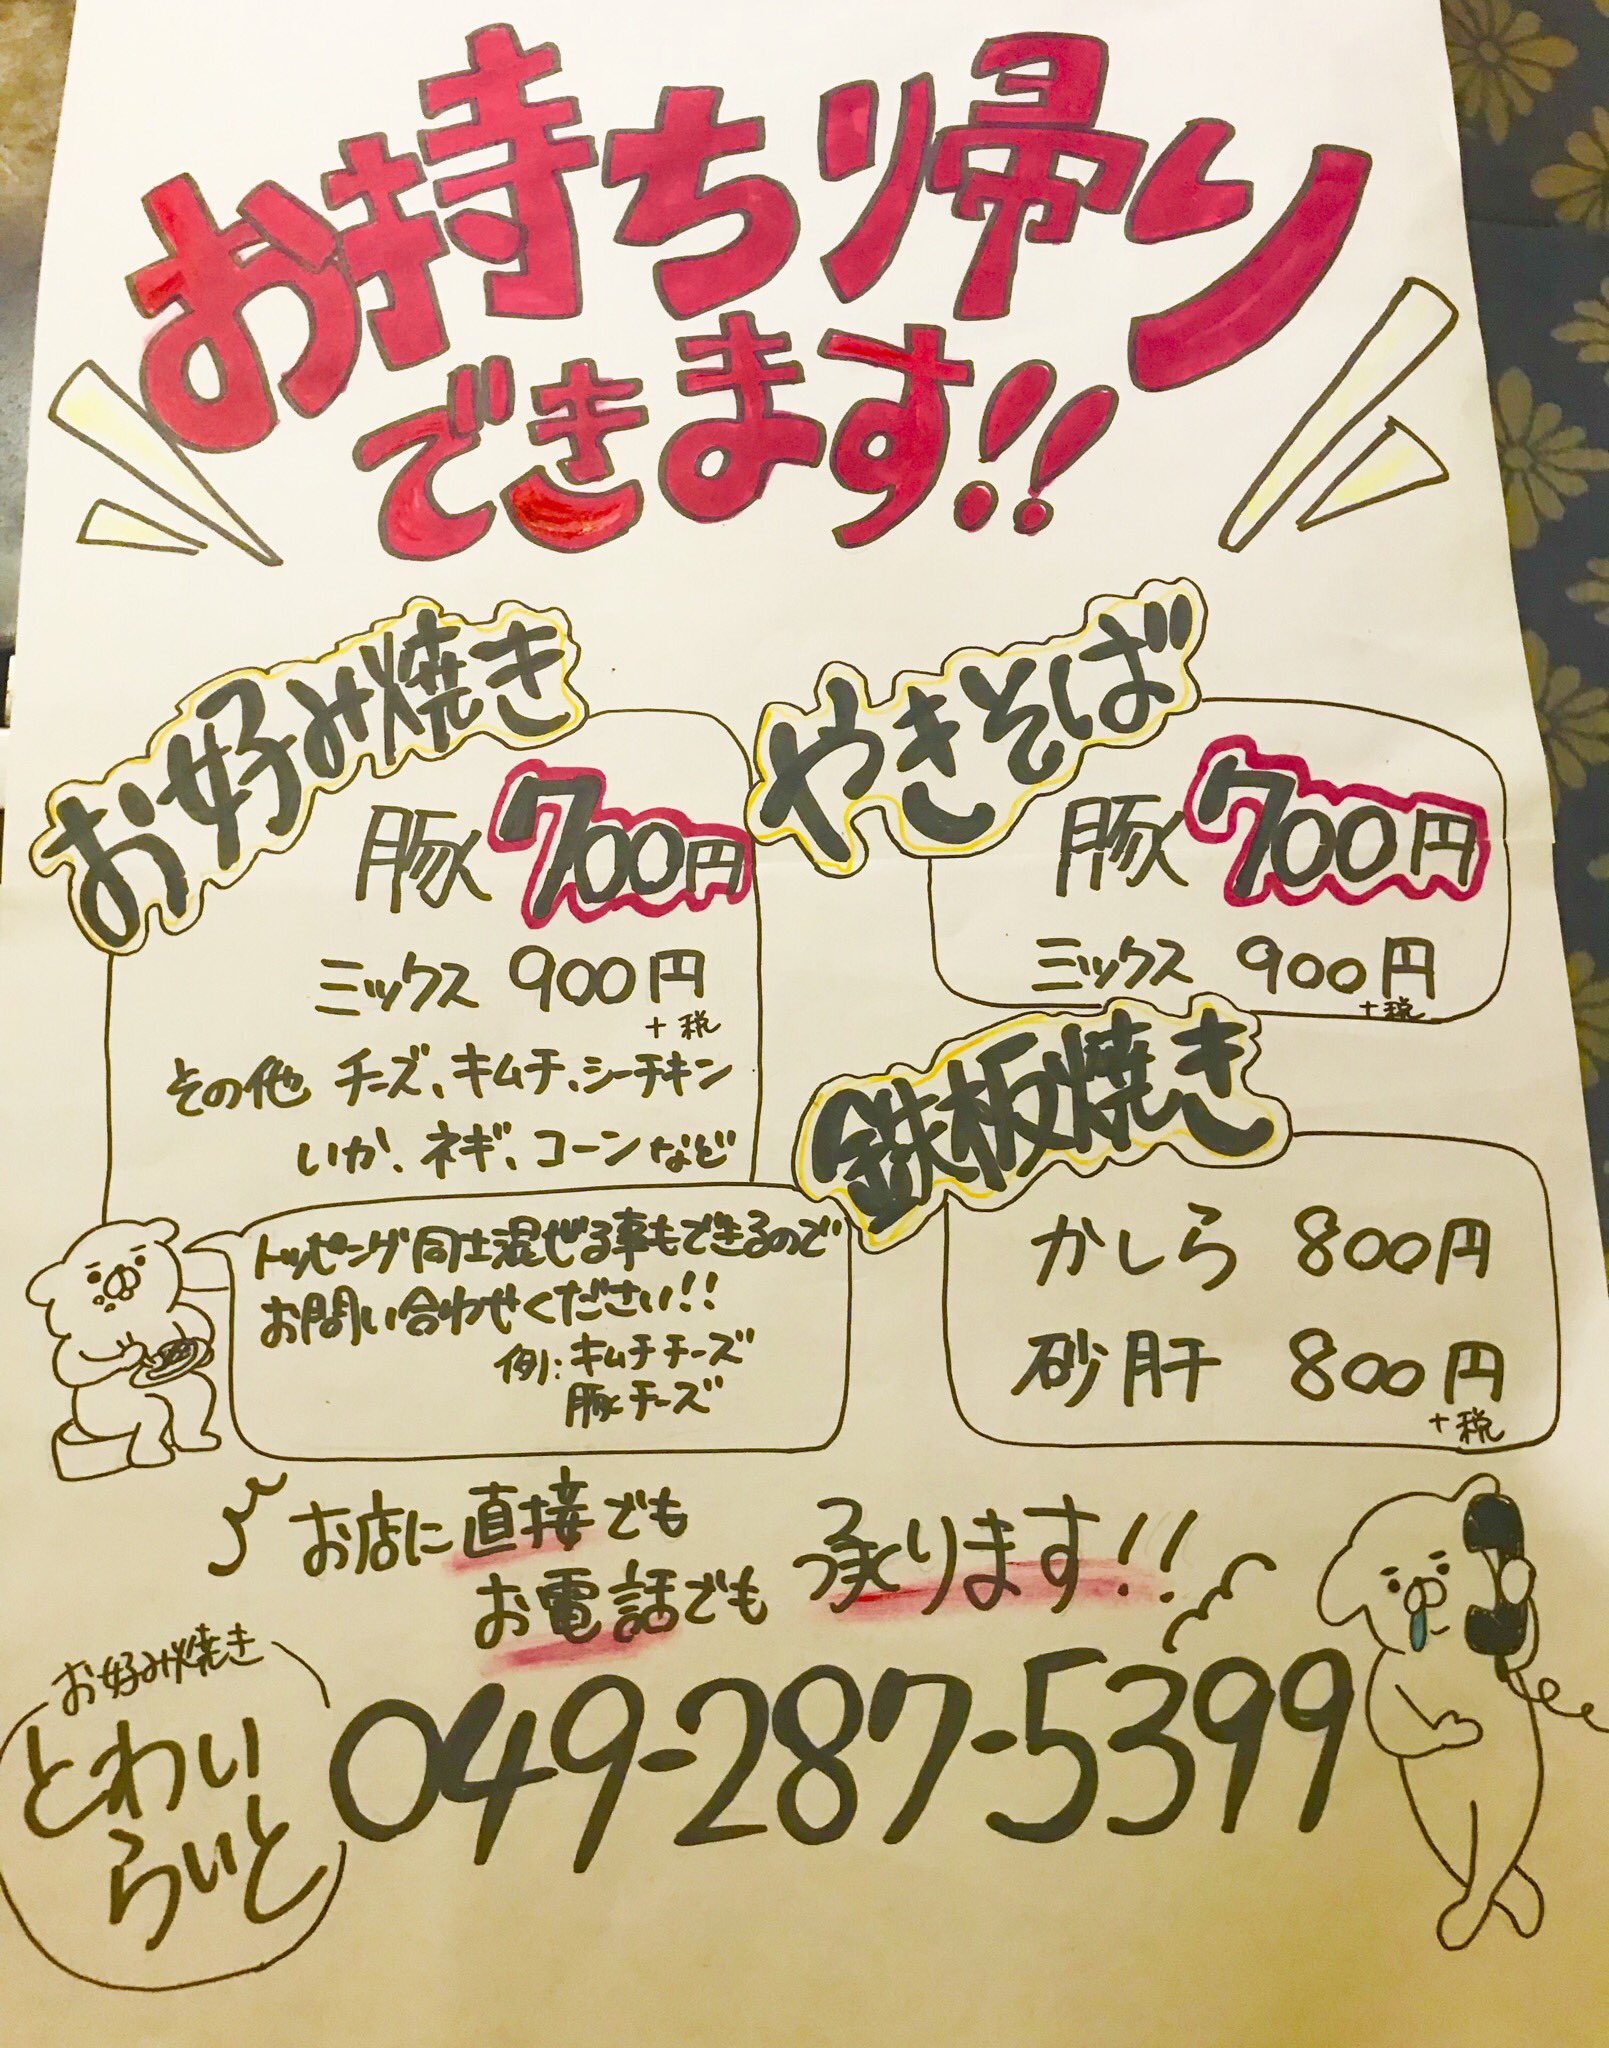 お持ち帰り
できます!!
お好み焼き
豚 700円
ミックス 900円
+税
その他 チーズ、キムチ、シーチキン
いか、ネギ、コーンなど
トッピング同士混ぜる事もできるので
お問い合わせください!!
例:キムチチーズ
豚チーズ
やきそば
豚 700円
ミックス 900円
+税
鉄板焼き
かしら 800円
砂肝 800円
+税
お店に直接でも
お電話でも
承ります!!
お好み焼き
とわい
らいと
049-287-5399